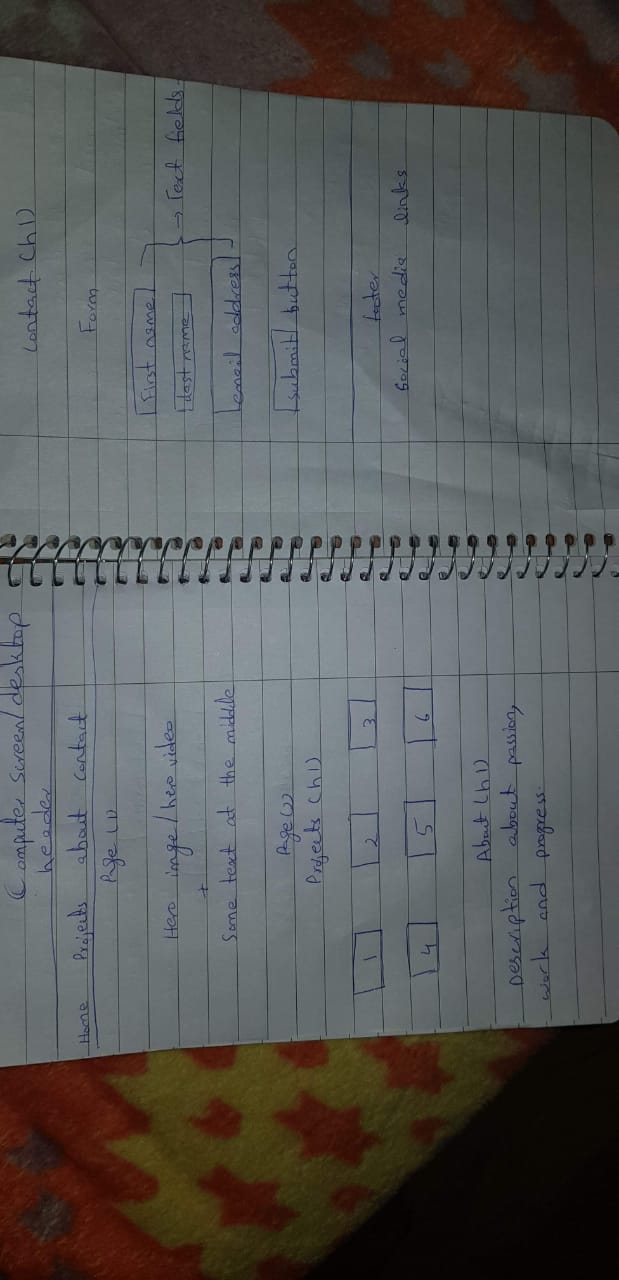 Computer screen/desktop
header
Home Projects about contact
Page (1)
Hero imge/hero video
+
Some text at the middle
Page (2)
Projects (h1)
1 2 3
4 5 6
About (h1)
Description about passion,
work and progress.
Contact (h1)
Form
First name
Last name → Text fields.
email address
Submit button
footer
Social media links